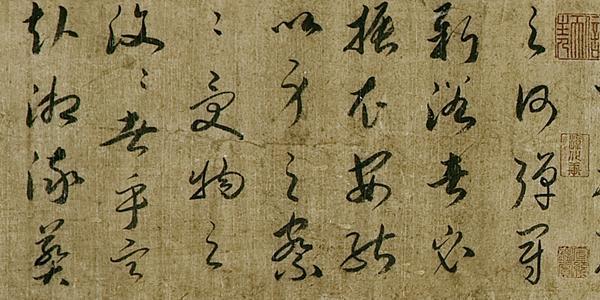 之彈冠
新浴者必
振衣安能
以身之察
〻受物之
汶〻者乎寧
赴湘流葬